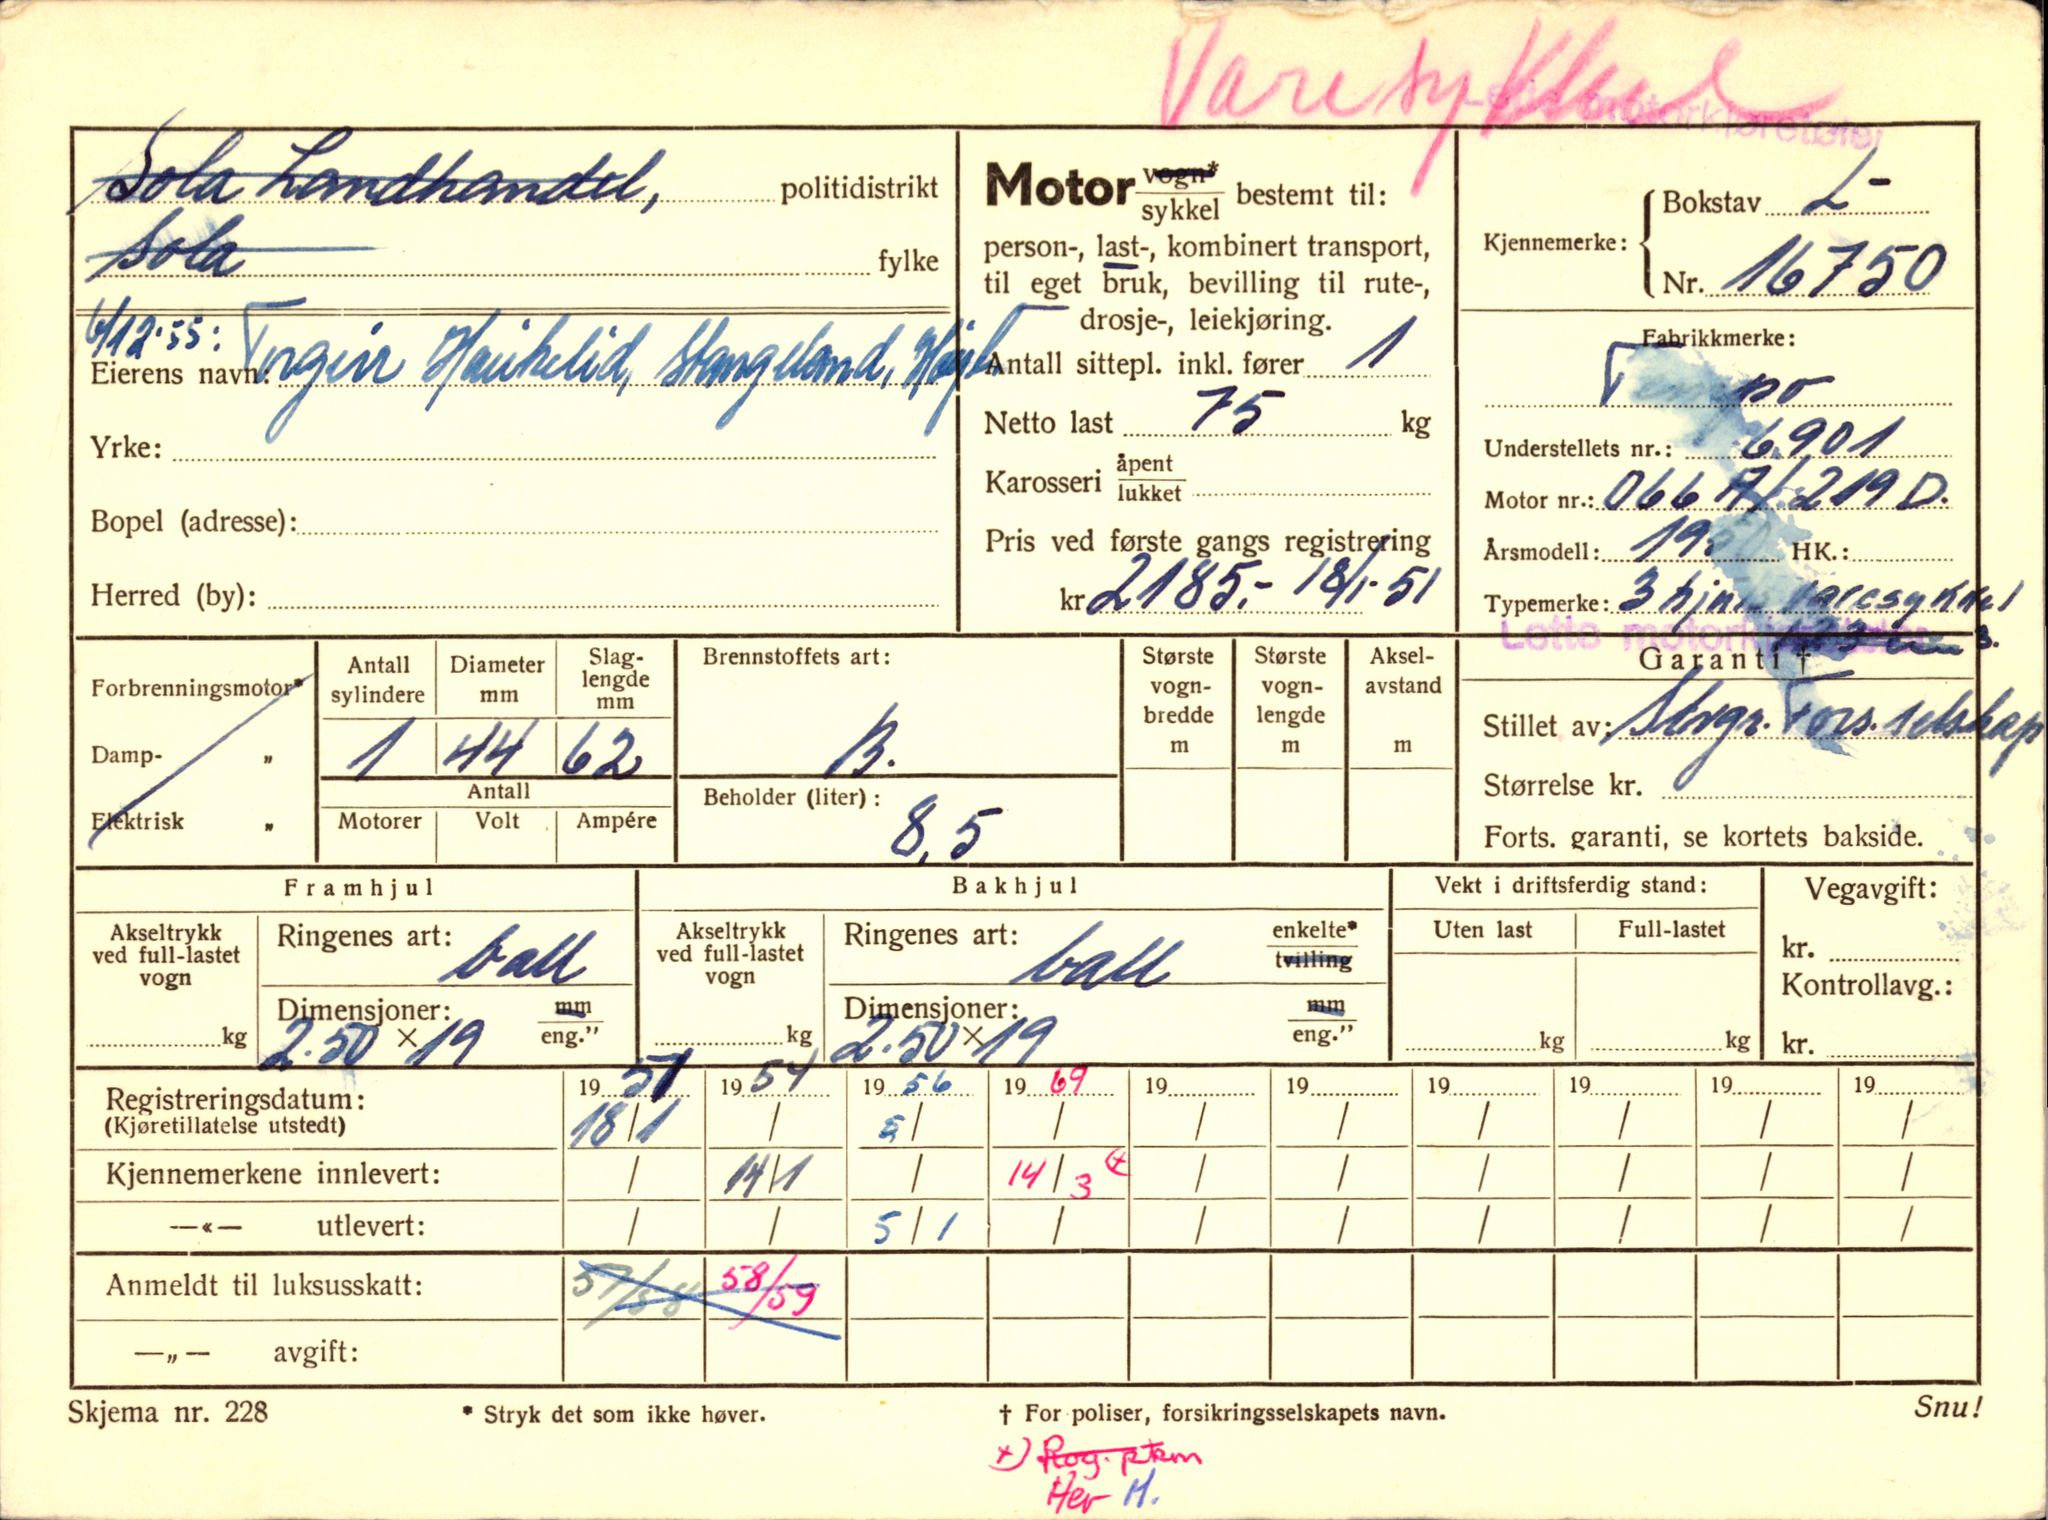 Varesykkel
Lette motorkjøretøier
Sola Landhandel, politidistrikt
Sola fylke
6/12-55: Torgeir Haukelid, Stangeland,
Eierens navn:
Yrke:
Bopel (adresse):
Herred (by):
Motor vogn* / sykkel bestemt til:
person-, last-, kombinert transport,
til eget bruk, bevilling til rute-,
drosje-, leiekjøring.
Antall sittepl. inkl. fører 1
Netto last 75 kg
Karosseri åpent / lukket
Pris ved første gangs registrering
kr 2185,- 18/1-51
Kjennemerke: Bokstav L-
Nr. 16750
Fabrikkmerke:
Tempo
Understellets nr.: 6901
Motor nr.: 066 A/ 219 D.
Årsmodell: 1950 HK.:
Typemerke: 3 hjuls varesykkel
Lette motorkjøretøier
Garanti †
Stillet av: Stvgr. Fors. selskap
Størrelse kr.
Forts. garanti, se kortets bakside.
Forbrenningsmotor*
Damp- „
Elektrisk „
Antall sylindere Diameter mm Slag-lengde mm
1 44 62
Antall
Motorer Volt Ampére
Brennstoffets art:
B.
Beholder (liter):
8,5
Største vogn-bredde m Største vogn-lengde m Aksel-avstand m
Framhjul
Akseltrykk ved full-lastet vogn
kg
Ringenes art: ball
Dimensjoner: mm / eng."
2.50 x 19
Bakhjul
Akseltrykk ved full-lastet vogn
kg
Ringenes art: ball enkelte* / tvilling
Dimensjoner: mm / eng."
2.50 x 19
Vekt i driftsferdig stand:
Uten last Full-lastet
kg kg
Vegavgift:
kr.
Kontrollavg.:
kr.
1951 1954 1956 1969 19 19 19 19 19 19
Registreringsdatum: 18/1 / / / / / / / / /
(Kjøretillatelse utstedt)
Kjennemerkene innlevert: / 14/1 / 14/3 x) / / / / / /
—«— utlevert: / / 5/1 / / / / / / /
Anmeldt til luksusskatt: 57/58 58/59
—„— avgift:
Skjema nr. 228 * Stryk det som ikke høver. † For poliser, forsikringsselskapets navn. Snu!
x) Rog. ptkm
Her H.